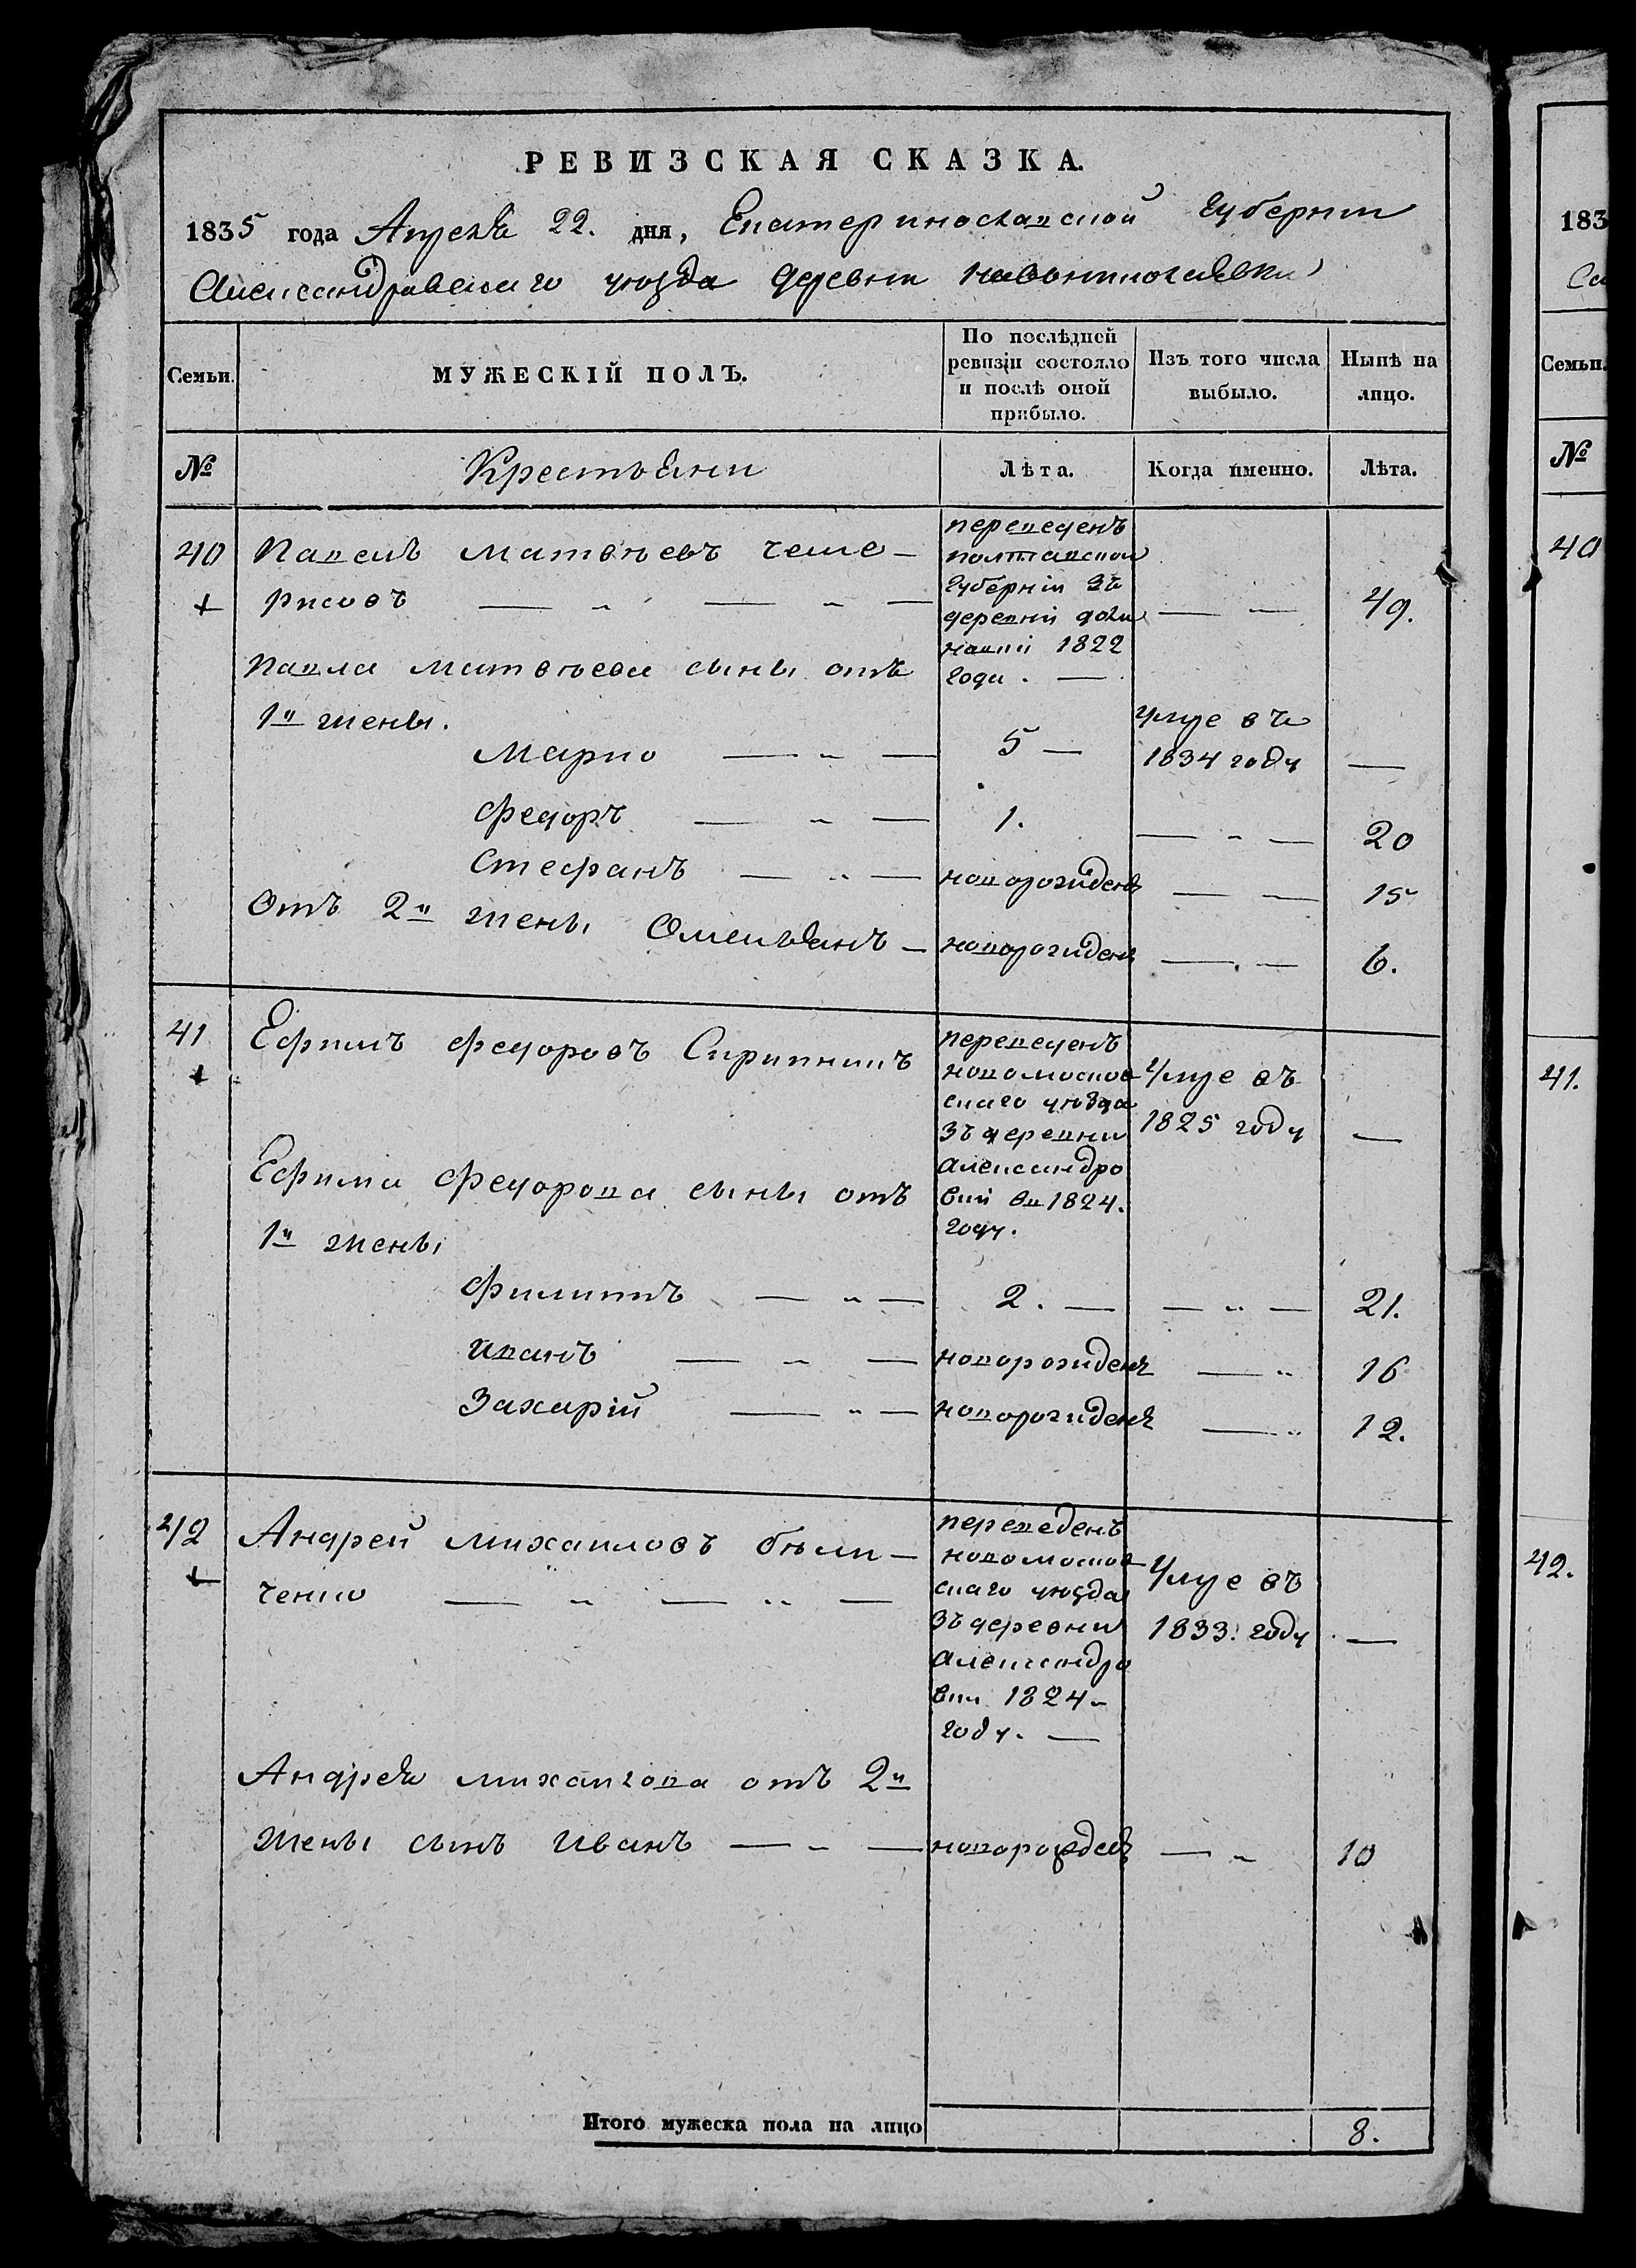 РЕВИЗСКАЯ СКАЗКА.
1835 года Апреля 22. дня, Екатеринославской Губернии
Александравскаго уюзда деревни
Семьи.
МУЖЕСКІЙ ПОЛЪ.
По послѣдней
ревизіи состояло
и послѣ оной
прибыло.
Изъ того числа
выбыло.
Нынѣ на
лицо.
№
Крестьяни
Лѣта.
Когда именно.
Лѣта.
40
Павелъ Матвѣевъ чеме-
рисовъ — „ — „ —
переведенъ
полтавской
Губерніи зъ
деревни
1822
года. —
— —
49.
Павла Матвѣева сыны отъ
1й жены.
Марко — „ —
5 —
умре въ
1834 году
—
Федоръ — „ —
1.
— „ —
20
Стефанъ — „ —
новорожденъ
— —
15
Отъ 2й жены Омельянъ —
новорожденъ
— . —
6.
41
Ефимъ Федоровъ Скрипникъ
переведенъ
новомосков
скаго уюзда
зъ деревни
александро
вки въ 1824.
году.
Умре въ
1825 году
—
Ефима Федорова сыны отъ
1й жены
Филиппъ — „ —
2. —
— „ —
21.
Иванъ — „ —
новорожденъ
— „
16
Захарій — „ —
новорожденъ
— „
12.
42
Андрей михаиловъ бѣли-
ченко — „ — „ —
переведенъ
новомосков
скаго уюзда
зъ деревни
александро
вки 1824-
году. —
Умре въ
1833. году
—
Андрея михаилова отъ 2й
жены сынъ Иванъ — „ —
новорожденъ
— „
10
Итого мужеска пола на лицо
8.
183
Семьи.
№
40
41.
42.